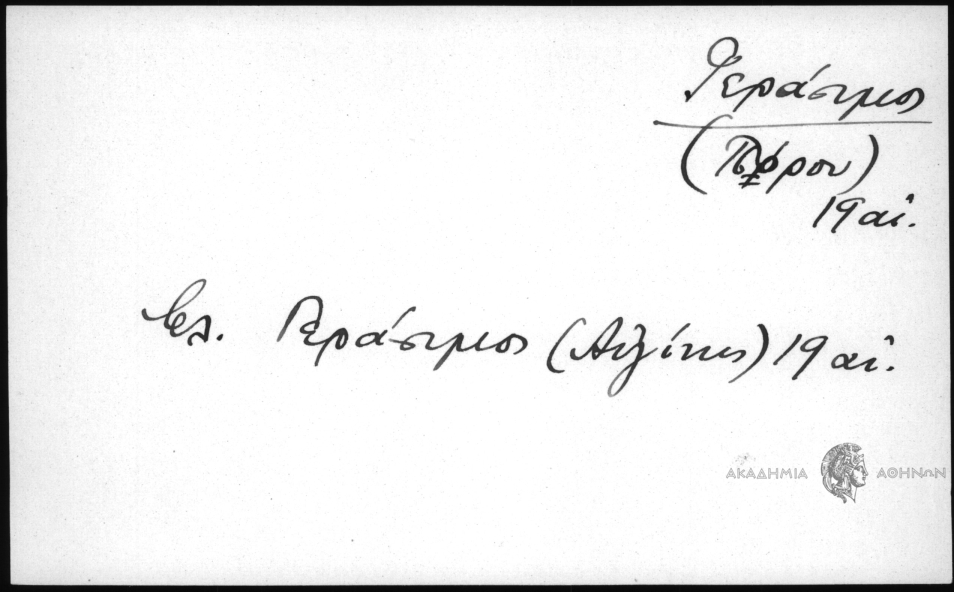 Γεράσιμος
(Πόρου)
19 αἰ.
βλ. Γεράσιμος (Αἰγίνης) 19 αἰ.
ΑΚΑΔΗΜΙΑ ΑΘΗΝΩΝ